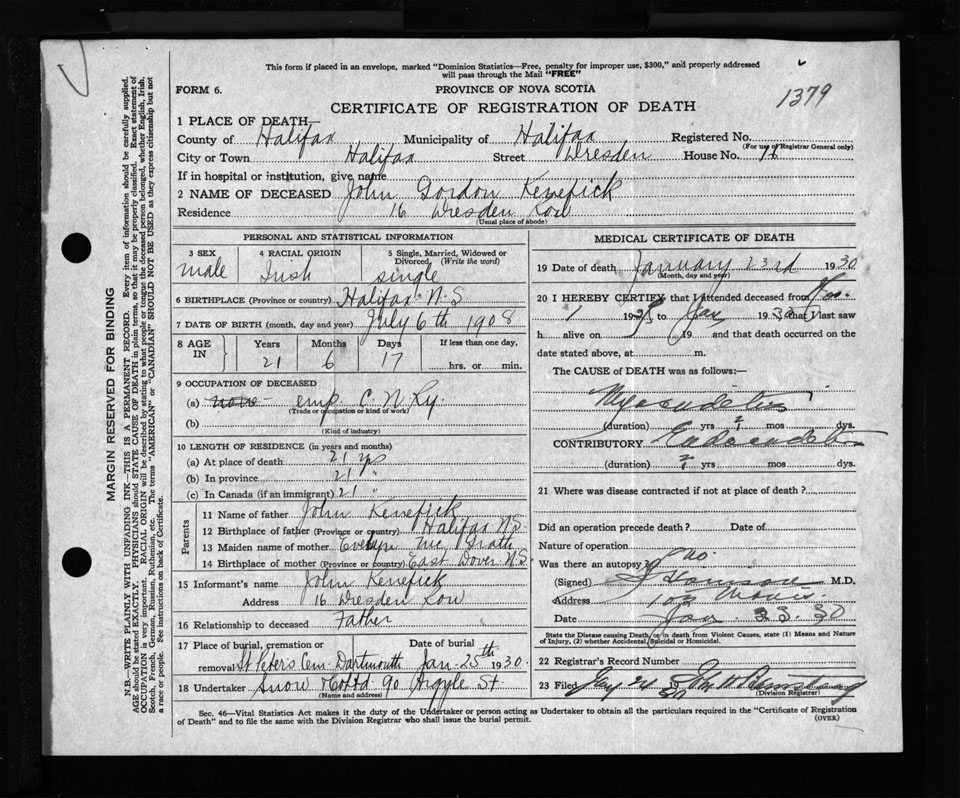 This form if placed in an envelope, marked "Dominion Statistics—Free, penalty for improper use, $300," and properly addressed
will pass through the Mail "FREE"
FORM 6.
PROVINCE OF NOVA SCOTIA
1379
CERTIFICATE OF REGISTRATION OF DEATH
1 PLACE OF DEATH—
County of Halifax Municipality of Halifax Registered No.
(For use of Registrar General only)
City or Town Halifax Street Dresden House No. 16
If in hospital or institution, give name
2 NAME OF DECEASED John Gordon Kenefick
Residence 16 Dresden Row
(Usual place of abode)
PERSONAL AND STATISTICAL INFORMATION
3 SEX male
4 RACIAL ORIGIN Irish
5 Single, Married, Widowed or Divorced, (Write the word) single
6 BIRTHPLACE (Province or country) Halifax N.S
7 DATE OF BIRTH (month, day and year) July 6th 1908
8 AGE IN Years Months Days If less than one day,
21 6 17 hrs. or min.
9 OCCUPATION OF DECEASED
(a) none emp. C N Ry
(Trade or occupation or kind of work)
(b)
(Kind of industry)
10 LENGTH OF RESIDENCE (in years and months)
(a) At place of death 21 yrs
(b) In province 21 "
(c) In Canada (if an immigrant) 21 "
Parents
11 Name of father John Kenefick
12 Birthplace of father (Province or country) Halifax N.S.
13 Maiden name of mother Evelyn Mc Grath
14 Birthplace of mother (Province or country) East Dover N.S
15 Informant's name John Kenefick
Address 16 Dresden Row
16 Relationship to deceased Father
17 Place of burial, cremation or removal St Peter's Cem. Dartmouth Date of burial Jan. 25th 1930
18 Undertaker Snow Co Ltd 90 Argyle St
(Name and address)
MEDICAL CERTIFICATE OF DEATH
19 Date of death January 23rd 1930
(Month, day and year)
20 I HEREBY CERTIFY that I attended deceased from
1 19 to Jan 1930 that I last saw
h alive on 19 and that death occurred on
date stated above, at m.
The CAUSE of DEATH was as follows:—
Myocarditis
(duration) yrs 2 mos. dys.
CONTRIBUTORY Endocarditis
(duration) yrs mos dys.
21 Where was disease contracted if not at place of death?
Did an operation precede death? Date of
Nature of operation
Was there an autopsy? no
(Signed) M.D.
Address 103 Morris
Date Jan. 23. 30
State the Disease causing Death, or in death from Violent Causes, state (1) Means and Nature
of Injury, (2) whether Accidental, Suicidal or Homicidal.
22 Registrar's Record Number
23 Filed Jany 24 30
(Division Registrar)
Sec. 46—Vital Statistics Act makes it the duty of the Undertaker or person acting as Undertaker to obtain all the particulars required in the "Certificate of Registration
of Death" and to file the same with the Division Registrar who shall issue the burial permit.
(OVER)
MARGIN RESERVED FOR BINDING
N.B.—WRITE PLAINLY WITH UNFADING INK—THIS IS A PERMANENT RECORD. Every item of information should be carefully supplied.
AGE should be stated EXACTLY. PHYSICIANS should STATE CAUSE OF DEATH in plain terms, so that it may be properly classified. Exact statement of
OCCUPATION is very important. RACIAL ORIGIN will be described by stating to what people or tongue the deceased person belonged, whether English, Irish,
Scotch, French, German, Russian, Ruthenian, etc. The terms "AMERICAN" or "CANADIAN" SHOULD NOT BE USED as they express citizenship but not
a race or people. See instructions on back of Certificate.